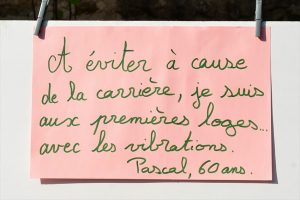 A éviter à cause
de la carrière, je suis
aux premières loges...
avec les vibrations.
Pascal, 60 ans.